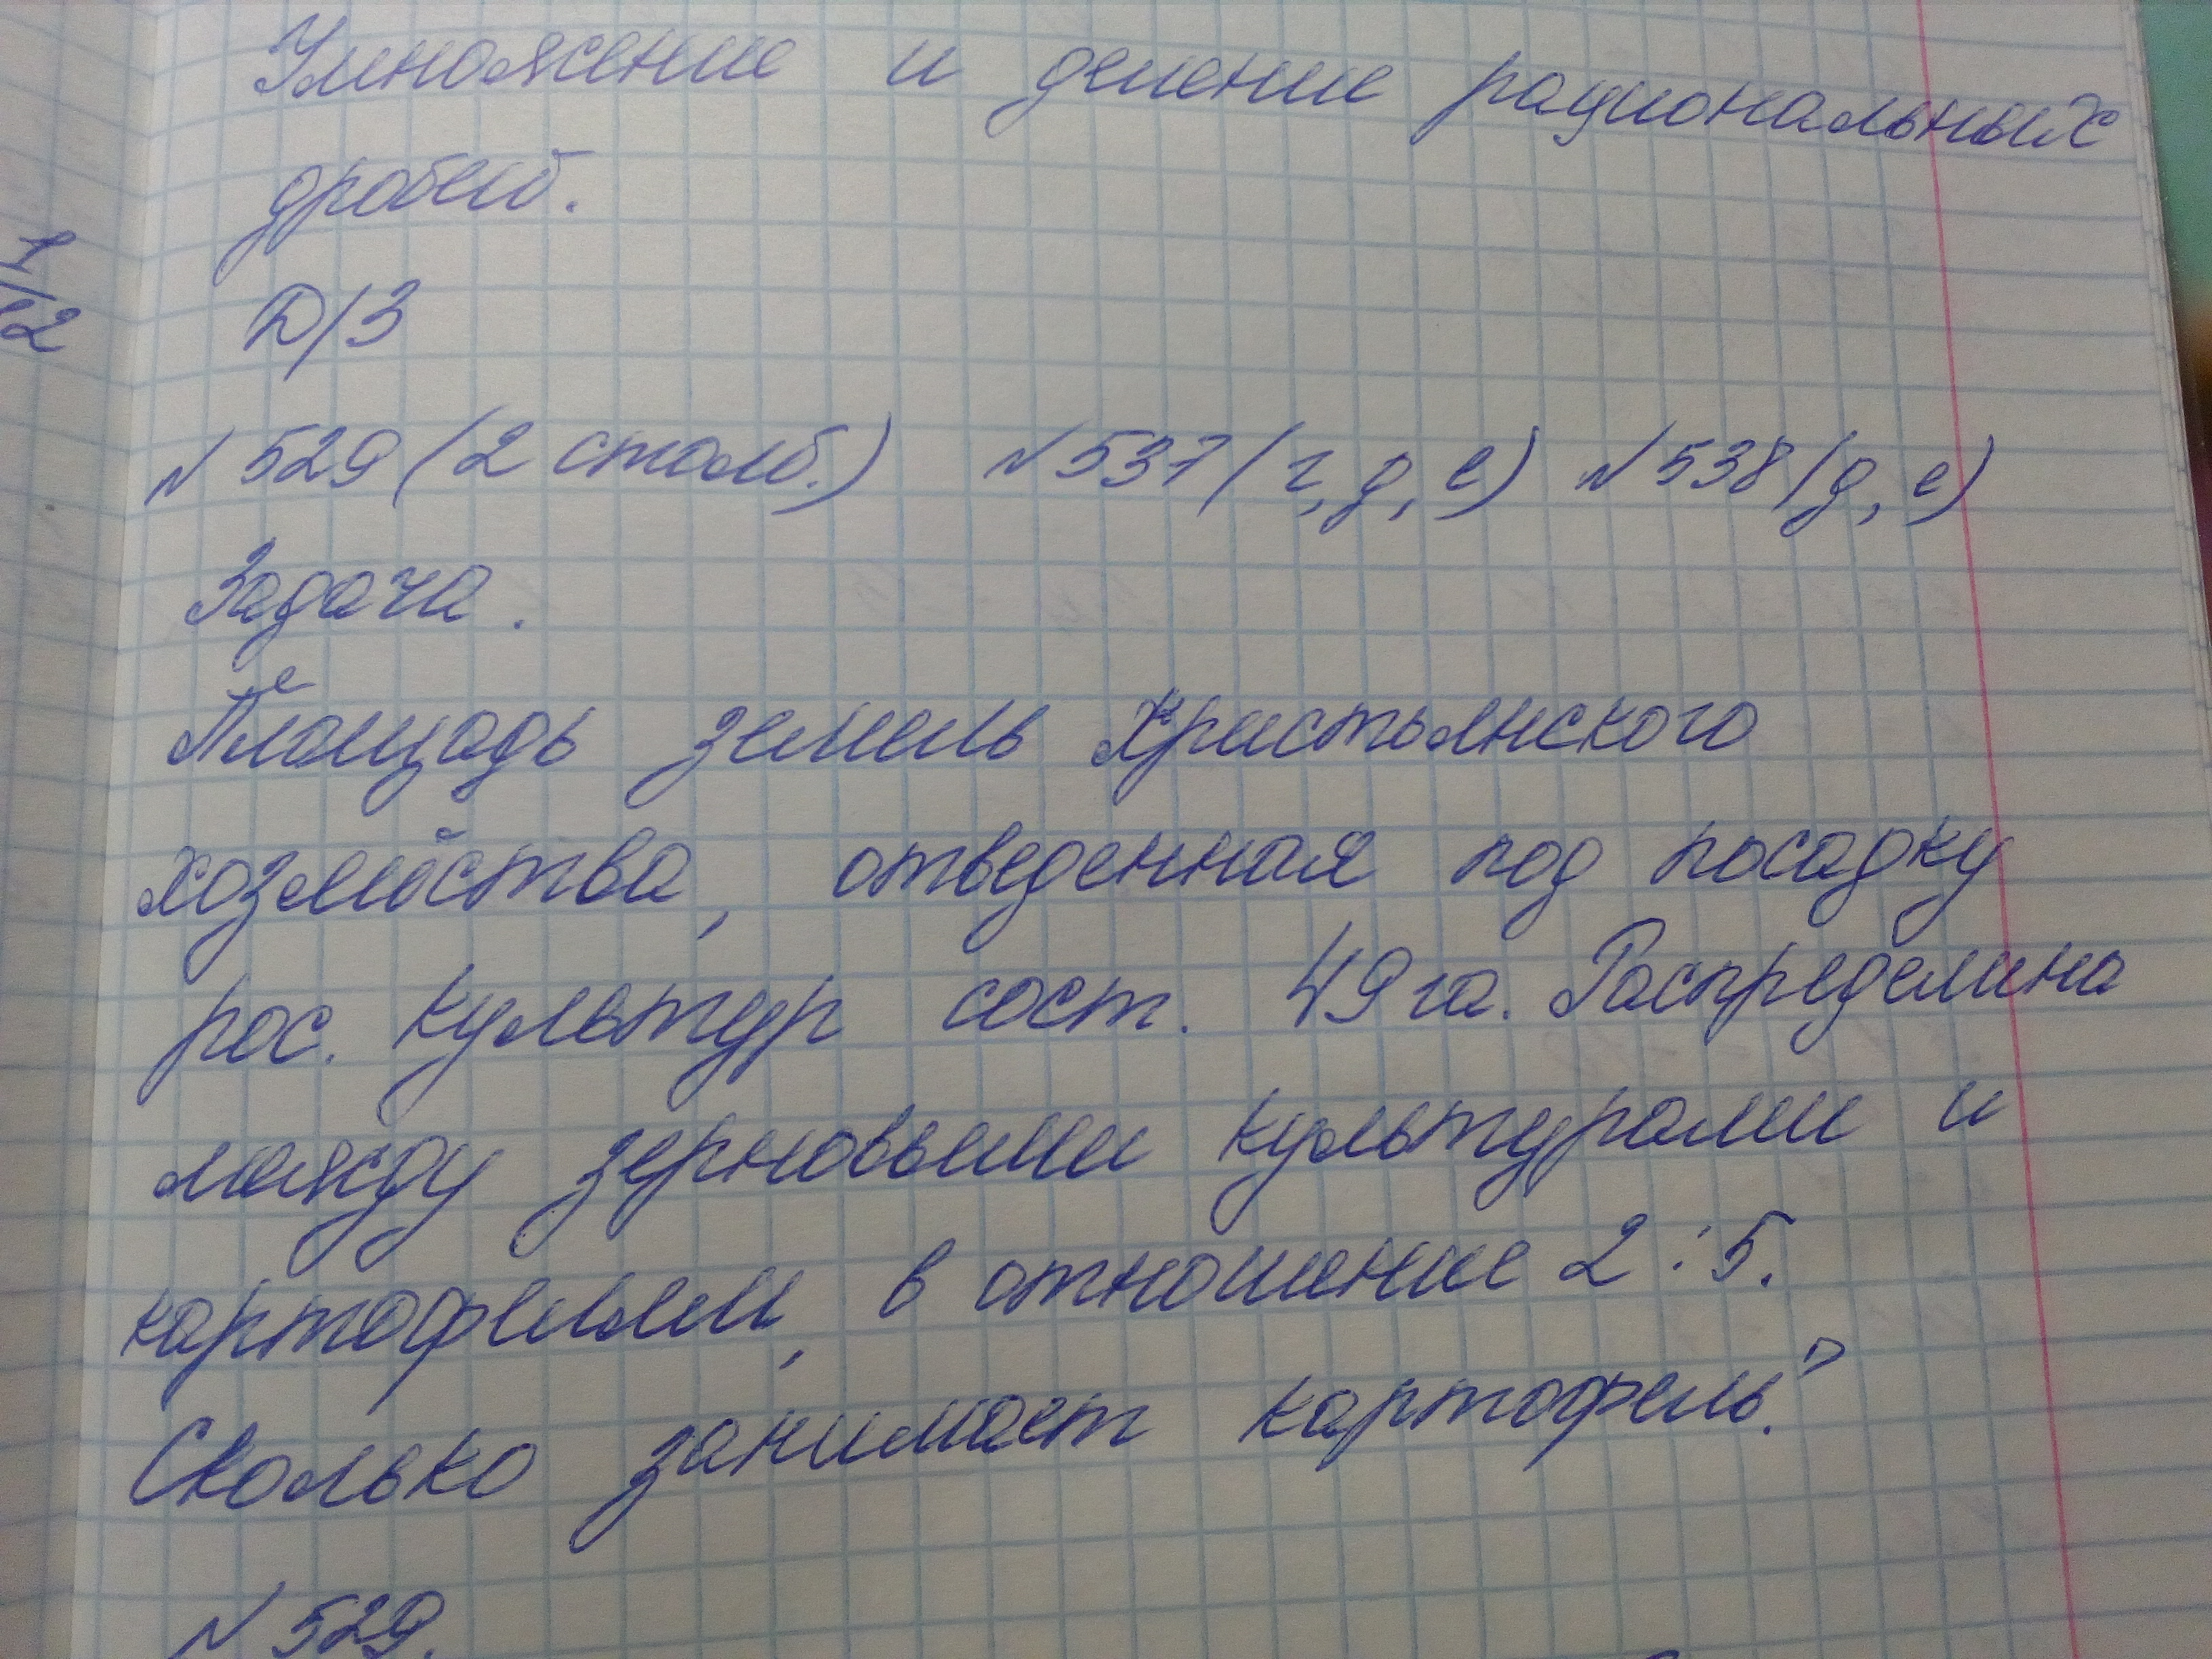 Умножение и деление рациональных
дробей.
Д/З
№ 529 (2 столб.) № 537 (г, д, е) № 538 (д, е)
Задача.
Площадь земель Крестьянского
хозяйства, отведенная под посадку
рос. культур сост. 49 га. Распределина
между зерновыми культурами и
картофелем, в отношение 2:5.
Сколько занимает картофель?
№ 529.
1/2